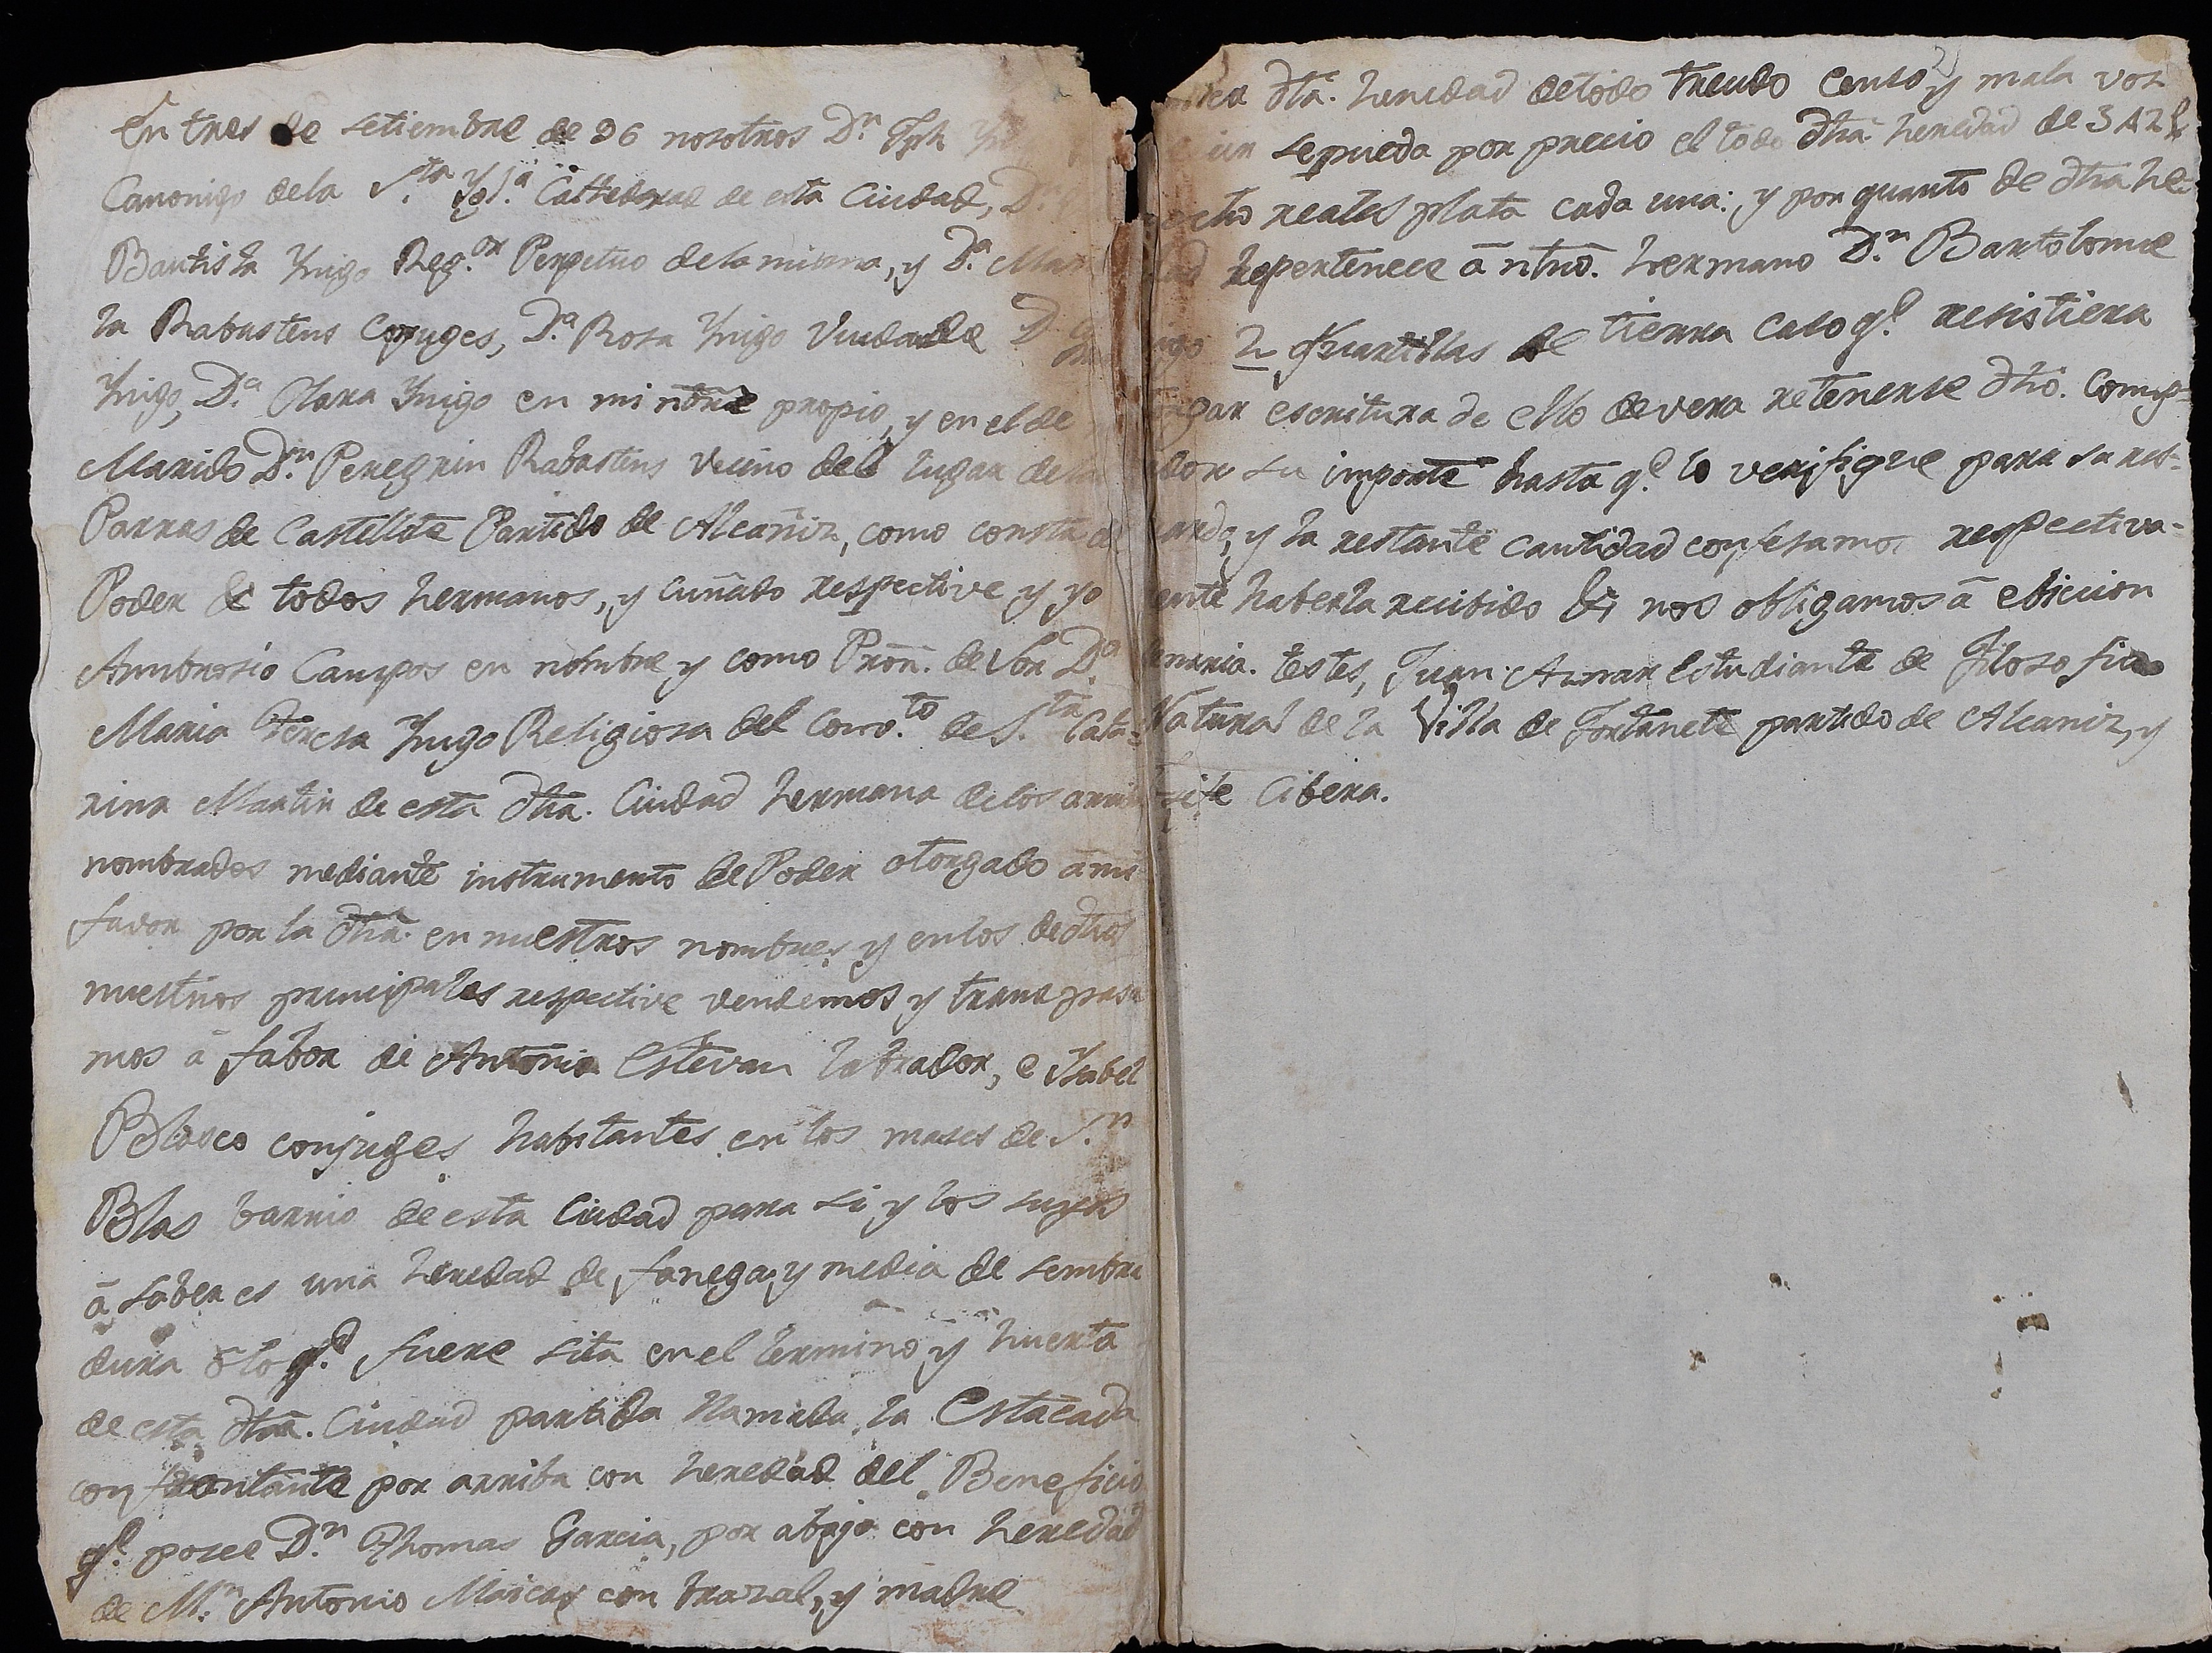 En tres de setiembre de 96 nosotros D.n Jph
Canonigo dela S.ta Ygl.a Cathedral de esta Ciudad, D.
Bautista Ynigo Reg.or Perpetuo dela misma, y D.a Mar
la Rabastens Conjuges, D.a Rosa Ynigo Viuda de D.
Ynigo, D.a Clara Ynigo en mi nōre propio, y en el de
Marido D.n Peregrin Rabastens Vecino del lugar de las
Parras de Castellote Partido de Alcañiz, como consta de
Poder & todos hermanos, y cuñado respective y yo
Ambrosio Campos en nombre y como Prōn. de Sor D.a
Maria Teresa Ynigo Religiosa del Conv.to de S.ta Cata-
rina Martir de esta dha. Ciudad hermana delos arri
nombrados mediante instrumento de Poder otorgado â mi
favor por la dha. en nuestros nombres y en los de dhos
nuestros principales respective vendemos y transpasa
mos â fabor de Antonio Estevan labrador, e Ysabel
Blasco conjuges habitantes en los mases de S.n
Blas barrio de esta Ciudad para si y los suyos
â saber es una heredad de fanega y media de sembra
dura ô lo q.e fuere sita en el termino y huerta
de esta dha. Ciudad partida llamada la Estacada
confrontante por arriba con heredad del Beneficio
q.e posee D.n Thomas Garcia, por abajo con heredad
de M.n Antonio Maicas con brazal, y madre
dha. heredad de todo treudo Censo y mala voz
se pueda por precio el todo dha heredad de 342 L
ocho reales plata cada una: y por quanto de dha he-
dad le pertenece â ntrō. hermano D.n Bartolome
Ynigo 2 quartillas de tierra caso q.e resistiera
otorgar escritura de ello devera retenerse dho. Comp-
ador su importe hasta q.e lo verifique para su res-
uardo, y la restante cantidad confesamos respectiva-
ente haberla recibido & nos obligamos â ebiccion
naria. testes, Juan Aznar Estudiante de Filosofia
Natural de la Villa de Fortanete partido de Alcaniz, y
Cibera.